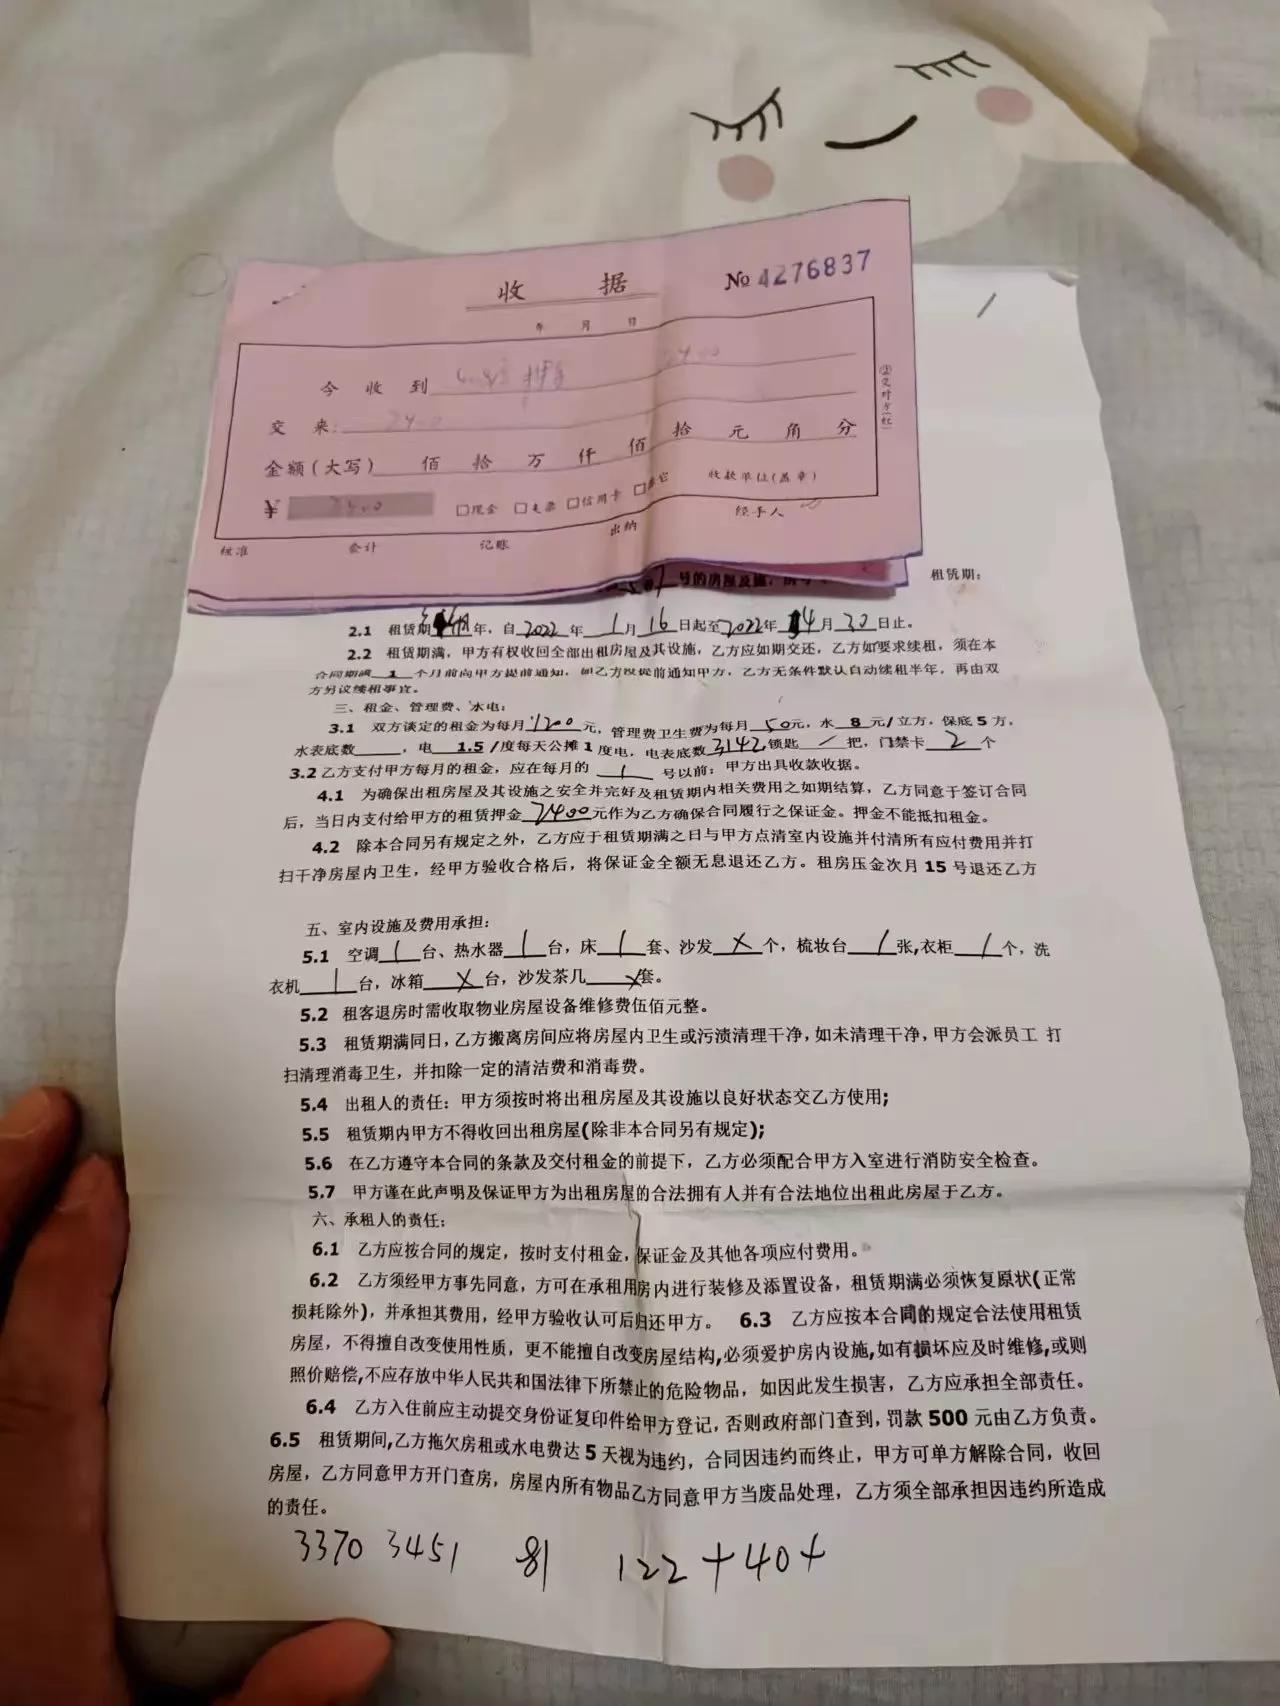 收 据
No 4276837
年 月 日
今 收 到 押金 2400
交 来: 2400
金额(大写) 佰 拾 万 仟 佰 拾 元 角 分
¥ 2400 □现金 □支票 □信用卡 □其它 收款单位(盖章)
核准 会计 记账 出纳 经手人
②交对方(红)
号的房屋及设 租赁期:
2.1 租赁期 年,自 2022 年 1 月 16 日起至 2022 年 4 月 30 日止。
2.2 租赁期满,甲方有权收回全部出租房屋及其设施,乙方应如期交还,乙方如要求续租,须在本
合同期满 1 个月前向甲方提前通知,如乙方没提前通知甲方,乙方无条件默认自动续租半年,再由双
方另议续租事宜。
三、租金、管理费、水电:
3.1 双方谈定的租金为每月 1200 元,管理费卫生费为每月 50 元,水 8 元/立方,保底 5 方,
水表底数 ,电 1.5 /度每天公摊 1 度电,电表底数 3142 锁匙 / 把,门禁卡 2 个
3.2 乙方支付甲方每月的租金,应在每月的 1 号以前;甲方出具收款收据。
4.1 为确保出租房屋及其设施之安全并完好及租赁期内相关费用之如期结算,乙方同意于签订合同
后,当日内支付给甲方的租赁押金 2400 元作为乙方确保合同履行之保证金。押金不能抵扣租金。
4.2 除本合同另有规定之外,乙方应于租赁期满之日与甲方点清室内设施并付清所有应付费用并打
扫干净房屋内卫生,经甲方验收合格后,将保证金全额无息退还乙方。租房压金次月 15 号退还乙方
五、室内设施及费用承担:
5.1 空调 1 台、热水器 1 台,床 1 套、沙发 X 个,梳妆台 1 张,衣柜 1 个,洗
衣机 1 台,冰箱 X 台,沙发茶几 X 套。
5.2 租客退房时需收取物业房屋设备维修费伍佰元整。
5.3 租赁期满同日,乙方搬离房间应将房屋内卫生或污渍清理干净,如未清理干净,甲方会派员工 打
扫清理消毒卫生,并扣除一定的清洁费和消毒费。
5.4 出租人的责任:甲方须按时将出租房屋及其设施以良好状态交乙方使用;
5.5 租赁期内甲方不得收回出租房屋(除非本合同另有规定);
5.6 在乙方遵守本合同的条款及交付租金的前提下,乙方必须配合甲方入室进行消防安全检查。
5.7 甲方谨在此声明及保证甲方为出租房屋的合法拥有人并有合法地位出租此房屋于乙方。
六、承租人的责任:
6.1 乙方应按合同的规定,按时支付租金,保证金及其他各项应付费用。
6.2 乙方须经甲方事先同意,方可在承租用房内进行装修及添置设备,租赁期满必须恢复原状(正常
损耗除外),并承担其费用,经甲方验收认可后归还甲方。 6.3 乙方应按本合同的规定合法使用租赁
房屋,不得擅自改变使用性质,更不能擅自改变房屋结构,必须爱护房内设施,如有损坏应及时维修,或则
照价赔偿,不应存放中华人民共和国法律下所禁止的危险物品,如因此发生损害,乙方应承担全部责任。
6.4 乙方入住前应主动提交身份证复印件给甲方登记,否则政府部门查到,罚款 500 元由乙方负责。
6.5 租赁期间,乙方拖欠房租或水电费达 5 天视为违约,合同因违约而终止,甲方可单方解除合同,收回
房屋,乙方同意甲方开门查房,房屋内所有物品乙方同意甲方当废品处理,乙方须全部承担因违约所造成
的责任。
3370 3451 81 122+40+